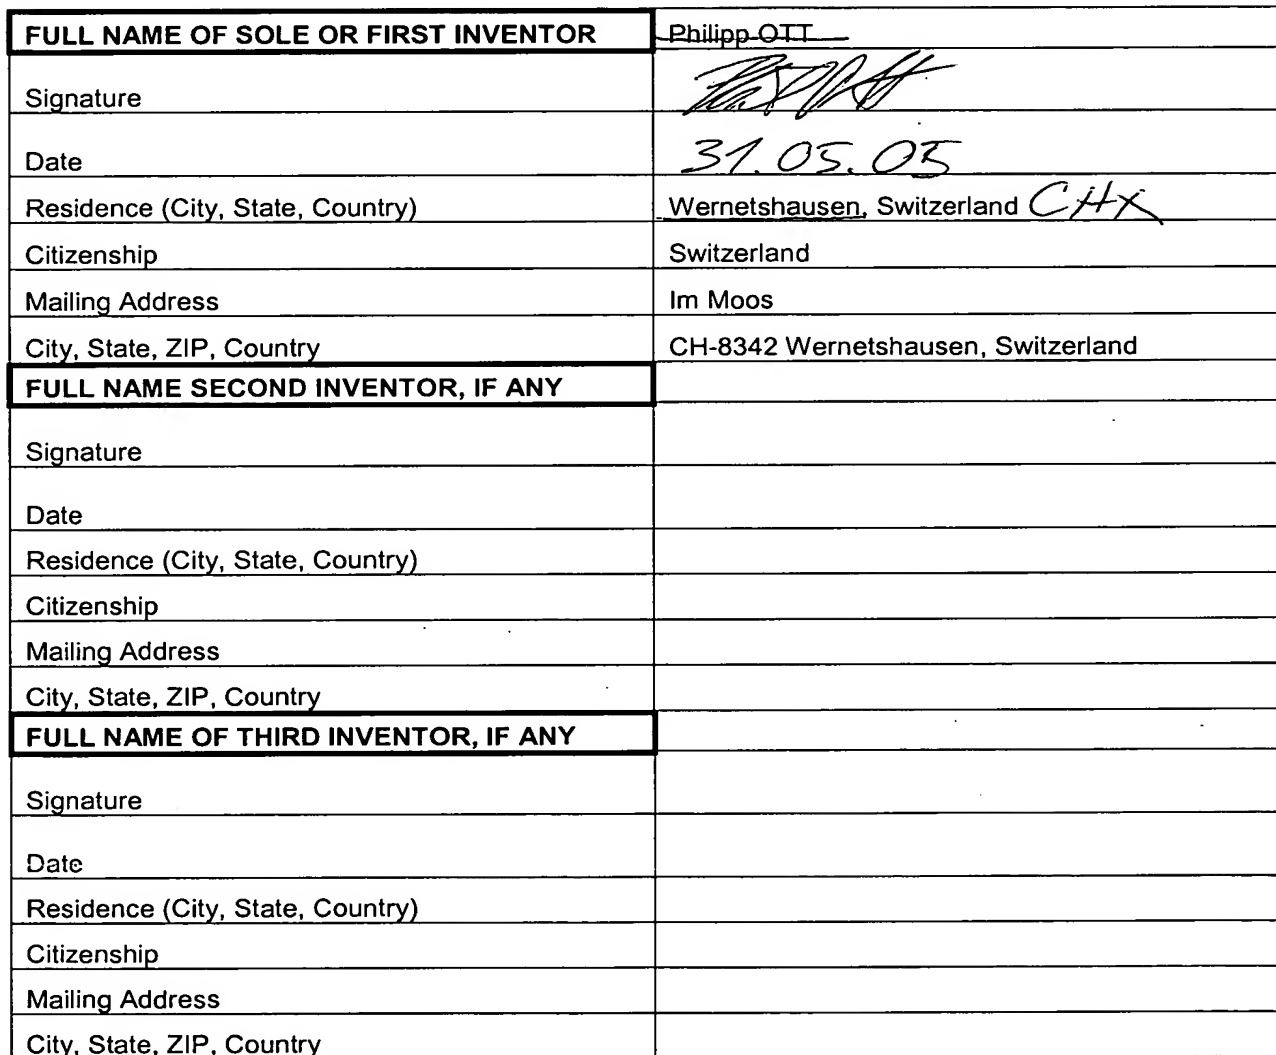 FULL NAME OF SOLE OR FIRST INVENTOR Philipp OTT
Signature
Date 31.05.05
Residence (City, State, Country) Wernetshausen, Switzerland CHX
Citizenship Switzerland
Mailing Address Im Moos
City, State, ZIP, Country CH-8342 Wernetshausen, Switzerland
FULL NAME SECOND INVENTOR, IF ANY
Signature
Date
Residence (City, State, Country)
Citizenship
Mailing Address
City, State, ZIP, Country
FULL NAME OF THIRD INVENTOR, IF ANY
Signature
Date
Residence (City, State, Country)
Citizenship
Mailing Address
City, State, ZIP, Country